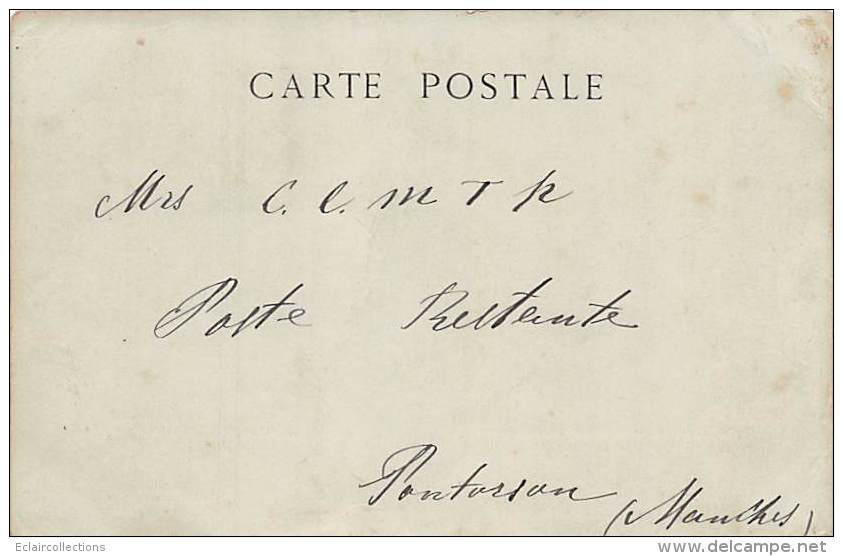 CARTE POSTALE
Mrs C. C. M T R
Poste Restante
Pontorson
(Manche)
Eclaircollections
www.delcampe.net